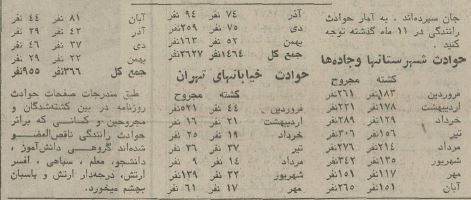 جان سپرده‌اند . به آمار حوادث
رانندگی در ۱۱ ماه گذشته توجه
کنید .
حوادث شهرستانها وجاده‌ها
کشته مجروح
فروردین ۱۸۳نفر ۲۶۱نفر
اردیبهشت ۱۷۸نفر ۲۲۱نفر
خرداد ۱۲۹نفر ۲۸۹نفر
تیر ۱۵۶نفر ۳۰۶نفر
مرداد ۲۱۴نفر ۲۷۶نفر
شهریور ۱۳۵نفر ۳۴۲نفر
مهر ۱۱۷نفر ۱۵۱نفر
آبان ۱۵۱نفر ۲۶۵نفر
آذر ۷۴ نفر ۹۴ نفر
دی ۷۵ نفر ۲۵۹نفر
بهمن ۵۲ نفر ۱۶۳نفر
جمع کل ۱۴۶۴نفر ۲۶۲۷نفر
حوادث خیابانهای تهران
کشته مجروح
فروردین ۴۴ نفر ۵۲۱نفر
اردیبهشت ۲۱ نفر ۱۶ نفر
خرداد ۱۹ نفر ۲۵ نفر
تیر ۳۷ نفر ۳۶ نفر
مرداد ۱۴ نفر ۹ نفر
شهریور ۲۲ نفر ۱۳۹نفر
مهر ۱۷ نفر ۶۱ نفر
آبان ۸۱ نفر ۴۴ نفر
آذر ۴۲ نفر ۲۹ نفر
دی ۳۷ نفر ۴۶ نفر
بهمن ۲۲ نفر ۲۹ نفر
جمع کل ۳۶۶نفر ۹۵۵نفر
طبق مندرجات صفحات حوادث
روزنامه در بین کشته‌شدگان و
مجروحین و کسانی که براثر
حوادث رانندگی ناقص‌العضو
شده‌اند گروهی دانش‌آموز ،
دانشجو، معلم ، سپاهی ، افسر
ارتش، درجه‌دار ارتش و پاسبان
بچشم میخورد.